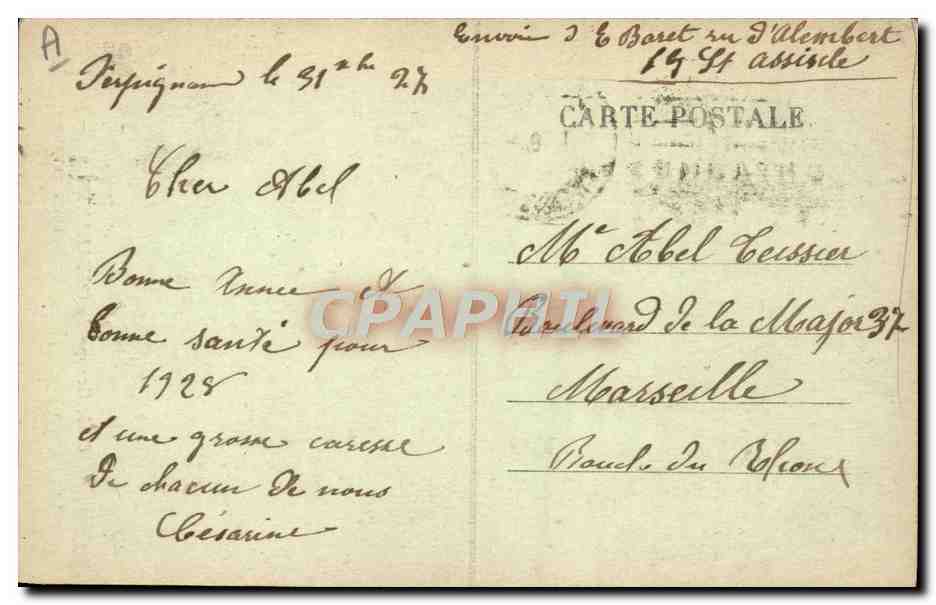 A
Envoi d E Baret ru d'Alembert
19 St assiscle
Perpignan le 31 27
CARTE POSTALE
Cher Abel
Bonne Année et
bonne santé pour
1928
et une grosse caresse
de chacun de nous
Césarine
Mr Abel Teissier
Boulevard de la Major 37
Marseille
Bouch du Rhone
CPAPHIL